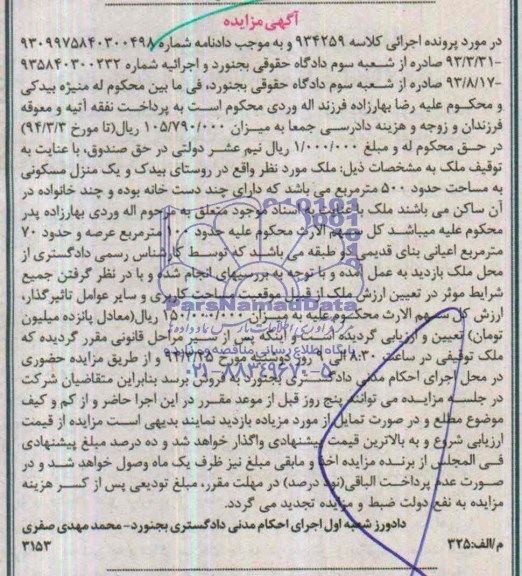 آگهی مزایده
در مورد پرونده اجرائی کلاسه ۹۳۴۲۵۹ و به موجب دادنامه شماره ۹۳۰۹۹۷۵۸۴۰۳۰۰۴۹۸
-۹۳/۳/۳۱ صادره از شعبه سوم دادگاه حقوقی بجنورد و اجرائیه شماره ۹۳۵۸۴۰۳۰۰۲۳۲
-۹۳/۸/۱۷ صادره از شعبه سوم دادگاه حقوقی بجنورد، فی ما بین محکوم له منیژه بیدکی
و محکوم علیه رضا بهارزاده فرزند اله وردی محکوم است به پرداخت نفقه آتیه و معوقه
فرزندان و زوجه و هزینه دادرسی جمعا به میزان ۱۰۵/۷۹۰/۰۰۰ ریال(تا مورخ ۹۴/۳/۳)
در حق محکوم له و مبلغ ۱/۰۰۰/۰۰۰ ریال نیم عشر دولتی در حق صندوق، با عنایت به
توقیف ملک به مشخصات ذیل: ملک مورد نظر واقع در روستای بیدک و یک منزل مسکونی
به مساحت حدود ۵۰۰ مترمربع می باشد که دارای چند دست خانه بوده و چند خانواده در
آن ساکن می باشند ملک با عنایت به اسناد موجود متعلق به مرحوم اله وردی بهارزاده پدر
محکوم علیه میباشد کل سهم الارث محکوم علیه حدود مترمربع عرصه و حدود ۷۰
مترمربع اعیانی بنای قدیمی دو طبقه می باشد که توسط کارشناس رسمی دادگستری از
محل ملک بازدید به عمل آمده و با توجه به بررسیهای انجام شده و با در نظر گرفتن جمیع
شرایط موثر در تعیین ارزش ملک از قبیل موقعیت مساحت کاربری و سایر عوامل تاثیرگذار،
ارزش کل سهم الارث محکوم علیه به میزان ۱۵۰/۰۰۰/۰۰۰ ریال(معادل پانزده میلیون
تومان) تعیین و ارزیابی گردیده است و اینکه پس از سیر مراحل قانونی مقرر گردیده که
ملک توقیفی در ساعت ۸:۳۰ الی روز دوشنبه مورخ و از طریق مزایده حضوری
در محل اجرای احکام مدنی دادگستری بجنورد به فروش برسد بنابراین متقاضیان شرکت
در جلسه مزایده می توانند پنج روز قبل از موعد مقرر در این اجرا حاضر و از کم و کیف
موضوع مطلع و در صورت تمایل از مورد مزایده بازدید نمایند بدیهی است مزایده از قیمت
ارزیابی شروع و به بالاترین قیمت پیشنهادی واگذار خواهد شد و ده درصد مبلغ پیشنهادی
فی المجلس از برنده مزایده اخذ و مابقی مبلغ نیز ظرف یک ماه وصول خواهد شد و در
صورت عدم پرداخت الباقی(نود درصد) در مهلت مقرر، مبلغ تودیعی پس از کسر هزینه
مزایده به نفع دولت ضبط و مزایده تجدید می گردد.
دادورز شعبه اول اجرای احکام مدنی دادگستری بجنورد- محمد مهدی صفری
م/الف:۳۲۵
۳۱۵۳
ParsNamadData
پایگاه اطلاع رسانی مناقصه و مزایده
۰۲۱-۸۸۳۴۹۶۷۰-۵